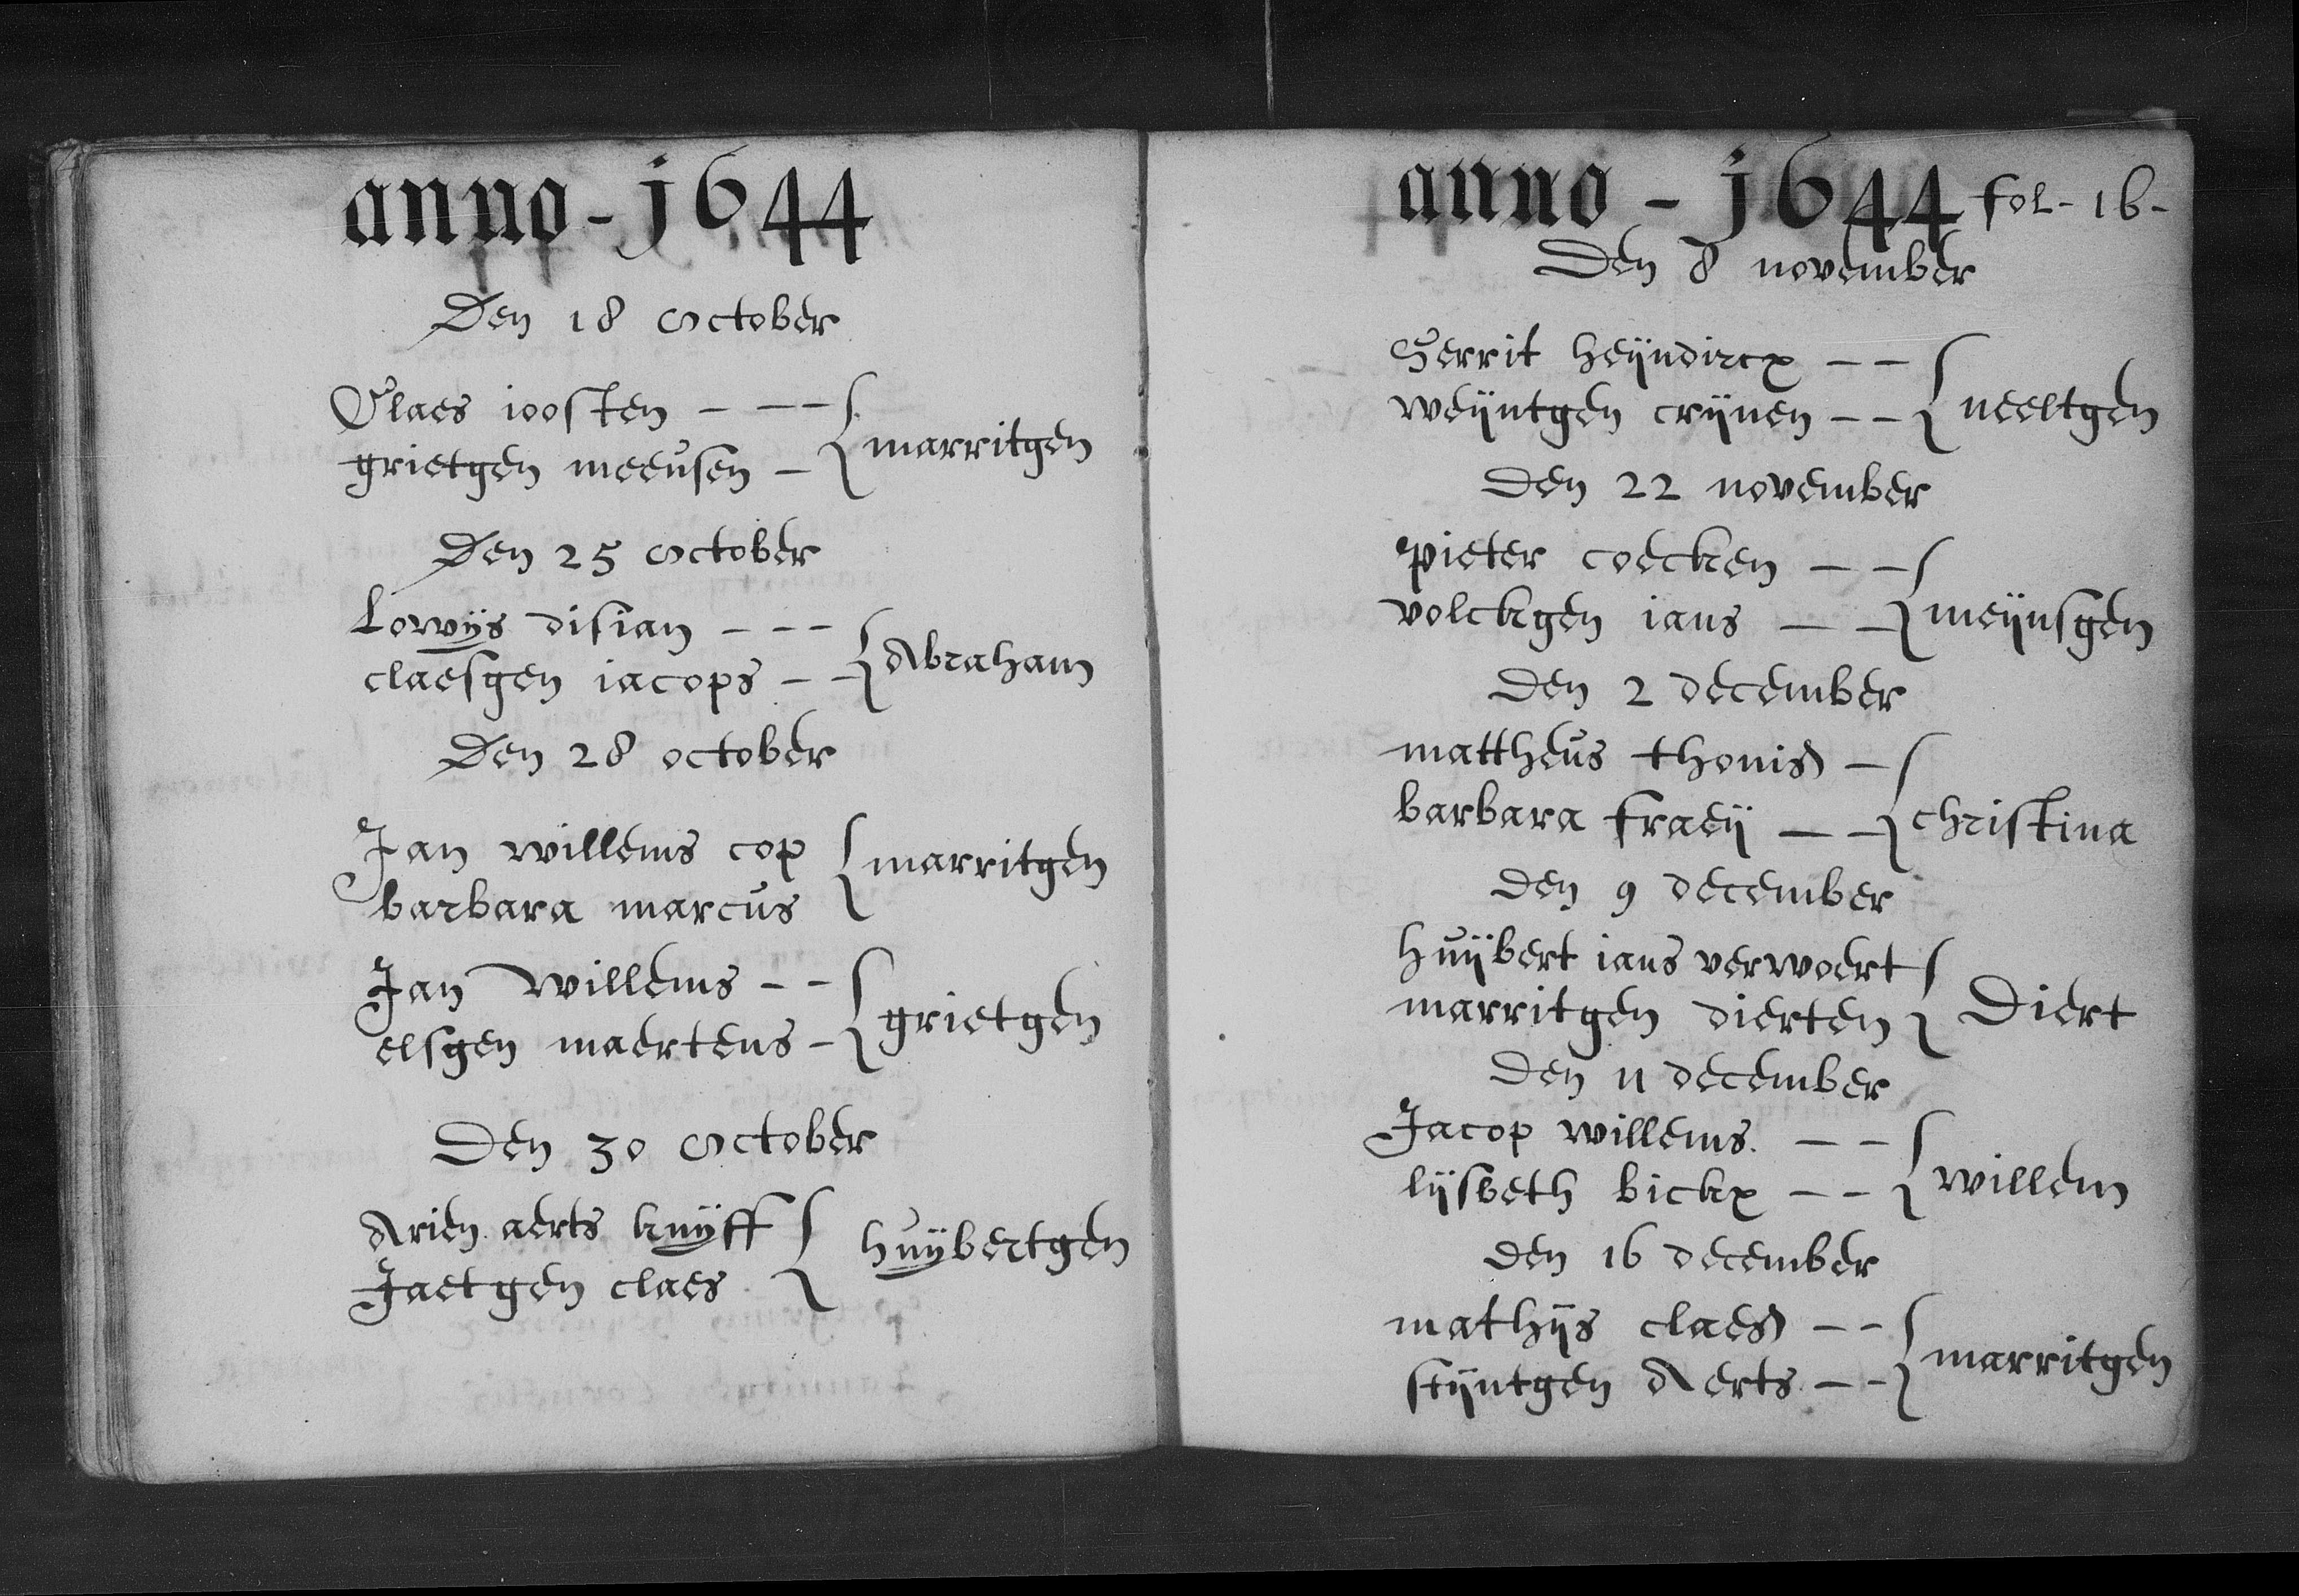 anno - 1644
Den 18 October
Claes joosten - - -
grietgen meeusen - { marritgen
Den 25 October
Lowijs disian - - -
claesgen iacops - - { Abraham
Den 28 october
Jan willems cop
barbara marcus { marritgen
Jan willems - -
elsgen maertens - { grietgen
Den 30 October
Arien aerts knijff
Jaetgen claes { huijbertgen
anno - 1644 fol - 16 -
Den 8 november
Gerrit heijndircx - -
weijntgen crijnen - - { neeltgen
Den 22 november
pieter coecken - -
volckgen ians - - { meijnsgen
Den 2 december
mattheus thonis -
barbara fraeij - - { christina
Den 9 december
huijbert ians verwoert
marritgen dierten { Diert
Den 11 december
Jacop willems. - -
lijsbeth bickx - - { willem
Den 16 december
mathijs claes - -
stijntgen Aerts - - { marritgen